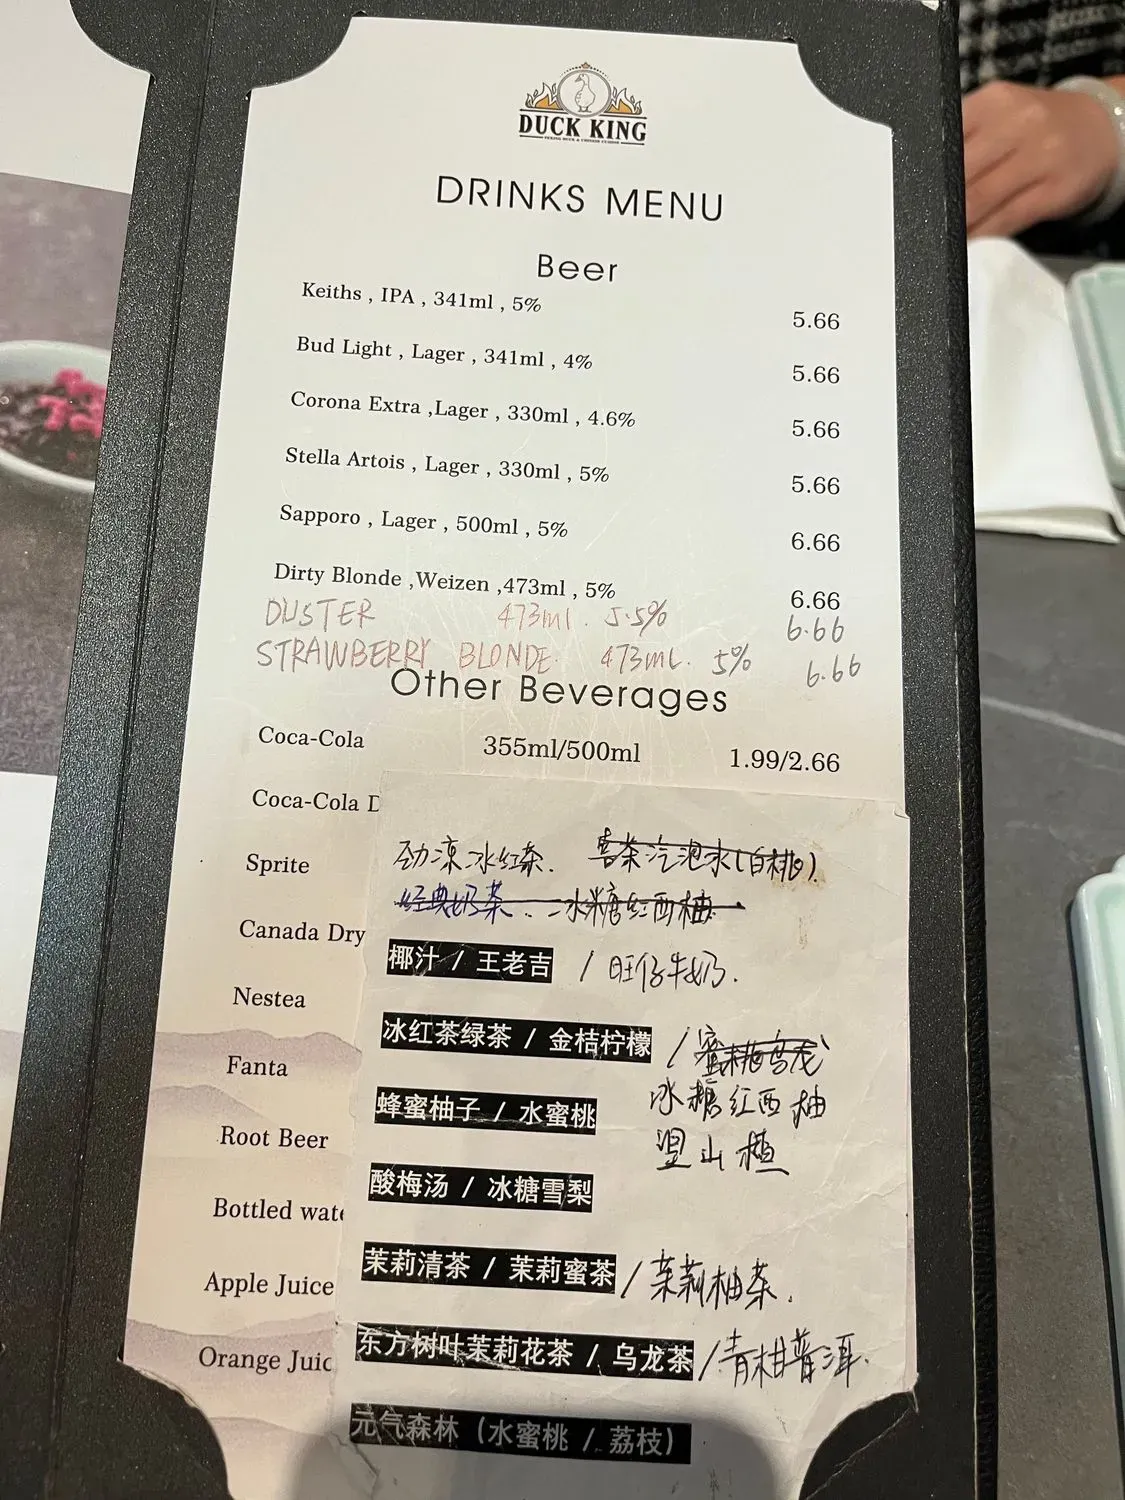 DUCK KING
PEKING DUCK & CHINESE CUISINE
DRINKS MENU
Beer
Keiths , IPA , 341ml , 5% 5.66
Bud Light , Lager , 341ml , 4% 5.66
Corona Extra ,Lager , 330ml , 4.6% 5.66
Stella Artois , Lager , 330ml , 5% 5.66
Sapporo , Lager , 500ml , 5% 6.66
Dirty Blonde ,Weizen ,473ml , 5% 6.66
DUSTER 473ml. 5.5% 6.66
STRAWBERRY BLONDE. 473mL. 5% 6.66
Other Beverages
Coca-Cola 355ml/500ml 1.99/2.66
Coca-Cola D
劲凉冰红茶. 喜茶汽泡水(白桃).
Sprite
经典奶茶. 冰糖红西柚
Canada Dry
椰汁 / 王老吉 / 旺仔牛奶.
Nestea
冰红茶绿茶 / 金桔柠檬 / 蜜桃乌龙
Fanta
冰糖红西柚
蜂蜜柚子 / 水蜜桃
Root Beer
山楂
酸梅汤 / 冰糖雪梨
Bottled wate
茉莉清茶 / 茉莉蜜茶 / 茉莉柚茶.
Apple Juice
东方树叶茉莉花茶 / 乌龙茶 / 青柑普洱.
Orange Juic
元气森林（水蜜桃 / 荔枝）